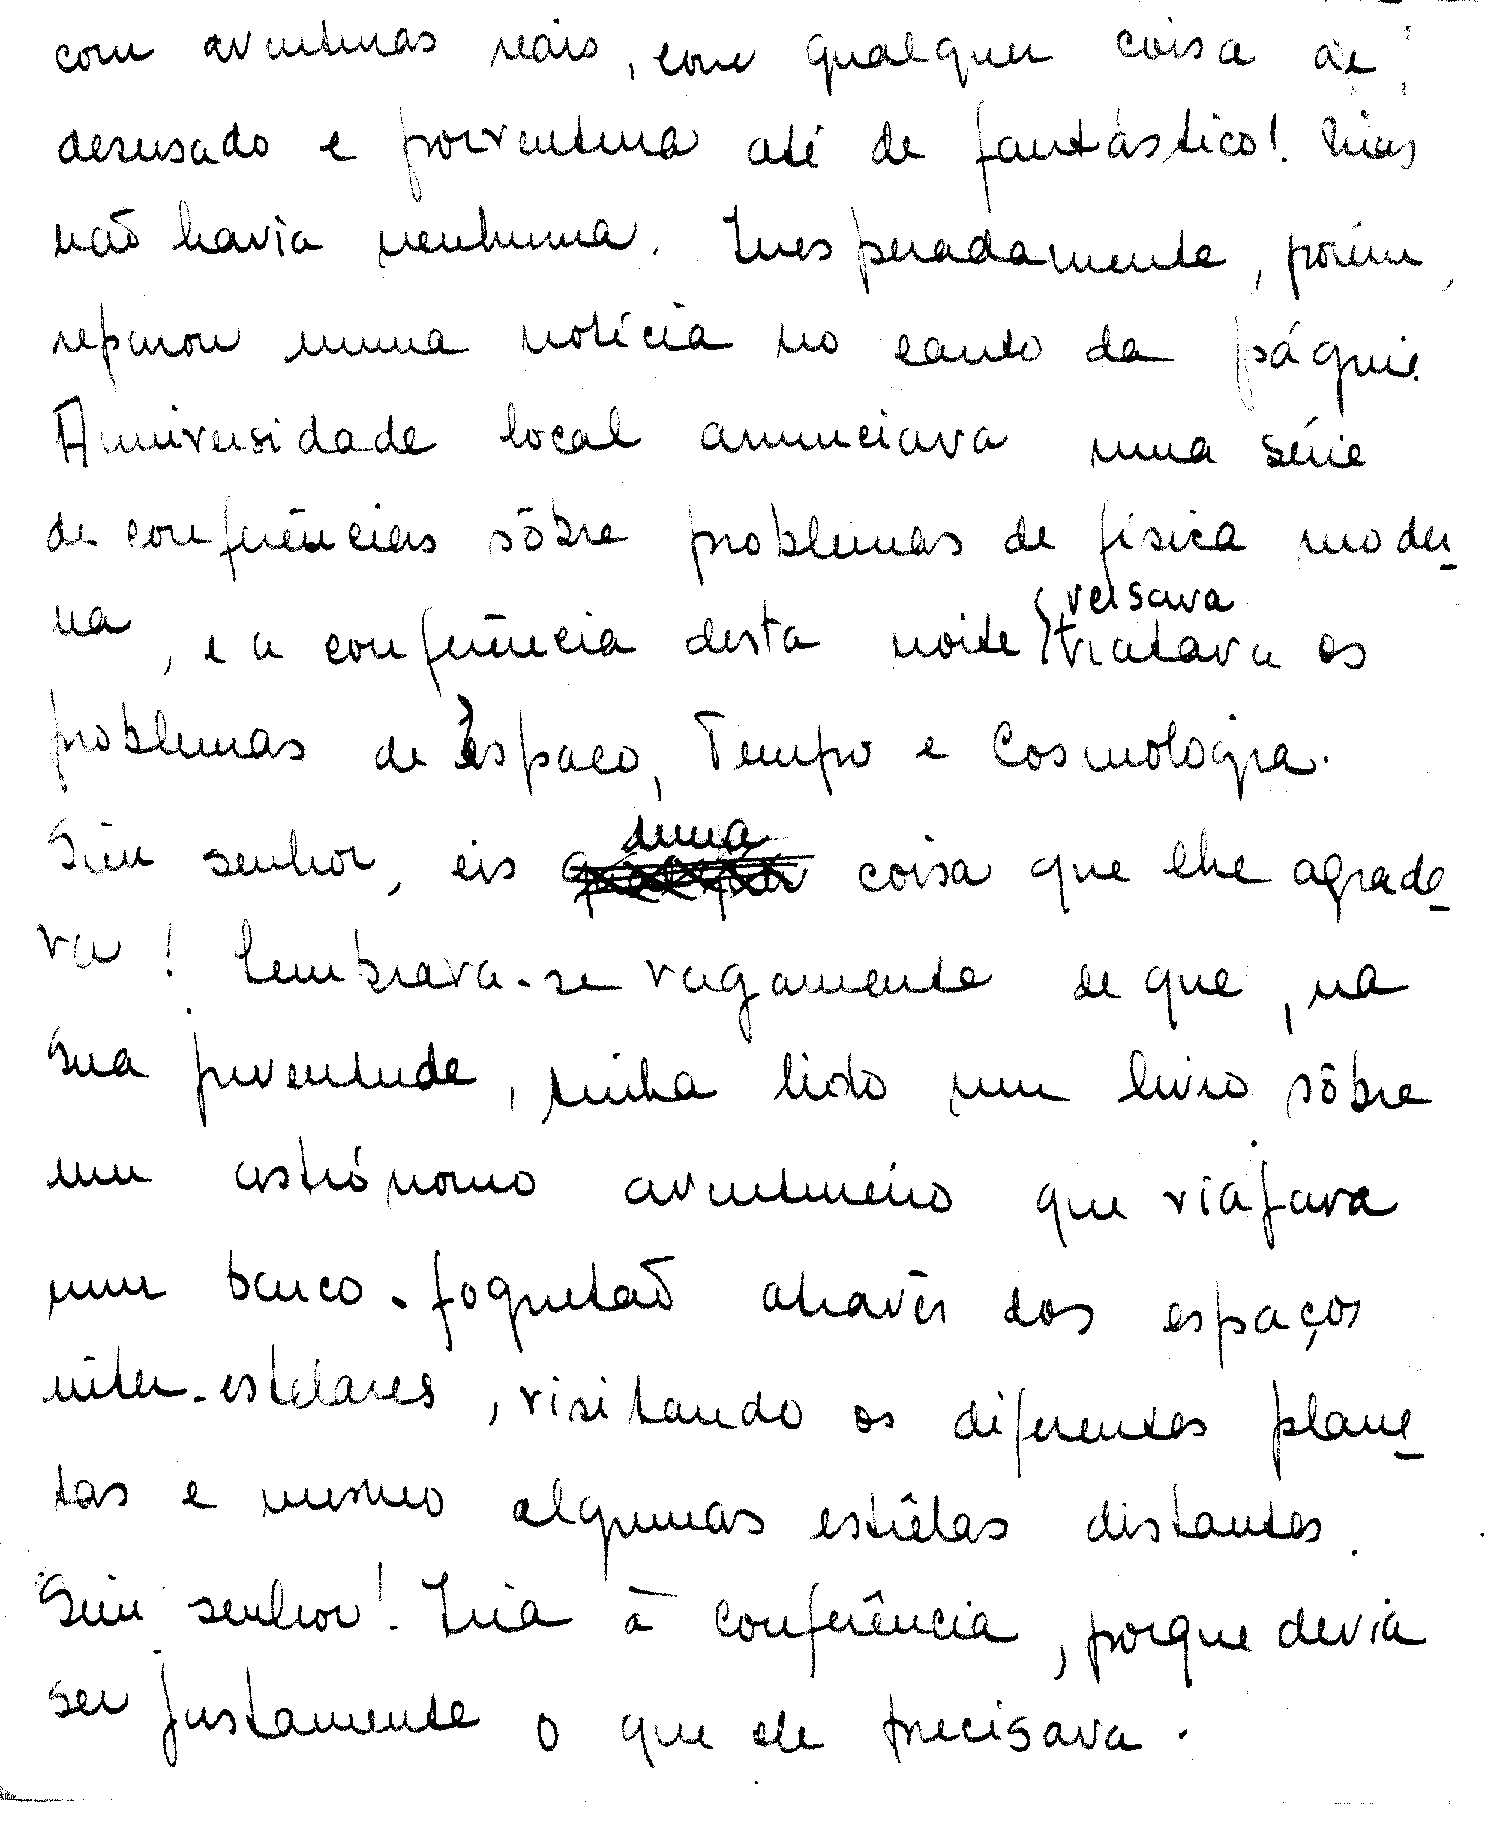 com aventuras reais, com qualquer coisa de
desusado e porventura até de fantástico! Mas
não havia nenhuma. Inesperadamente, porém,
reparou numa notícia no canto da página.
A universidade local anunciava uma série
de conferências sôbre problemas de física moder-
na, e a conferência desta noite versava
tratava os
problemas de espaço, Tempo e Cosmologia.
Sim senhor, eis duma coisa que lhe agrada-
va! Lembrava-se vagamente de que, na
sua juventude, tinha lido um livro sôbre
um astrónomo aventureiro que viajava
num barco-foguetão através dos espaços
inter-estelares, visitando os diferentes plane-
tas e mesmo algumas estrêlas distantes.
Sim senhor! Iria à conferência, porque devia
ser justamente o que ele precisava.